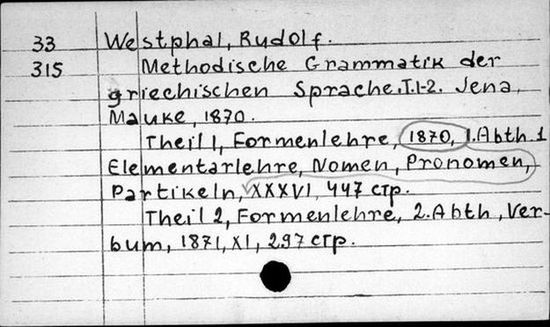 33 Westphal, Rudolf.
315 Methodische Grammatik der
griechischen Sprache. T.1-2. Jena,
Mauke, 1870.
Theil 1, Formenlehre, 1870, 1. Abth. 1
Elementarlehre, Nomen, Pronomen,
Partikeln, XXXVI, 447 стр.
Theil 2, Formenlehre, 2. Abth, Ver-
bum, 1871, XI, 297 стр.